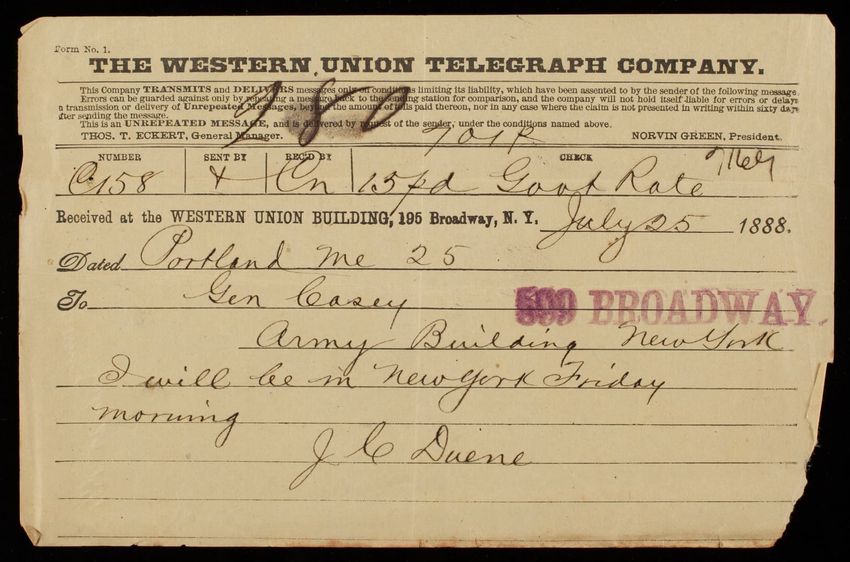 Form No. 1.
THE WESTERN UNION TELEGRAPH COMPANY.
280
This Company TRANSMITS and DELIVERS messages only on conditions limiting its liability, which have been assented to by the sender of the following message.
Errors can be guarded against only by repeating a message back to the sending station for comparison, and the company will not hold itself liable for errors or delays
in transmission or delivery of Unrepeated Messages, beyond the amount of tolls paid thereon, nor in any case where the claim is not presented in writing within sixty days
after sending the message.
This is an UNREPEATED MESSAGE, and is delivered by request of the sender, under the conditions named above.
THOS. T. ECKERT, General Manager. NORVIN GREEN, President.
701P
NUMBER SENT BY REC'D BY CHECK
C158 Cn 15 pd Govt Rate
Received at the WESTERN UNION BUILDING, 195 Broadway, N. Y. July 25 1888.
Dated Portland Me 25
To Gen Casey
599 BROADWAY.
Army Building New York
I will be in New York Friday
morning
J C Duene